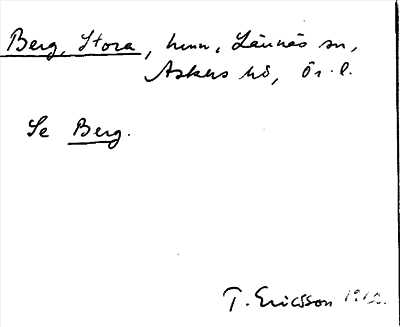 Berg, Stora, hmn, Lännäs sn,
Askers hd, Ör. l.
Se Berg.
T. Ericsson 1912.